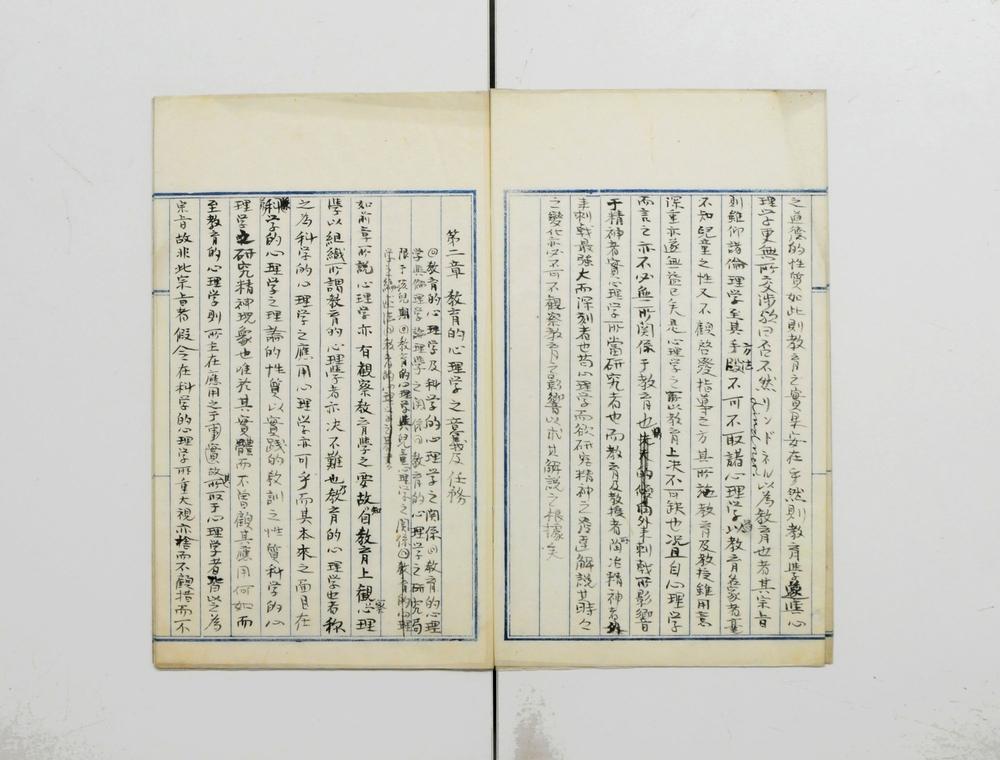 之道德的性質如此則教育之實果安在乎然則教育學與心
理学更無所交渉歟曰否不然リンドネル以為教育也者其宗旨
Lindner
則雖仰諸倫理學至其手段不可不取諸心理学以教育為家者毫
方法
不知兒童之性又不顧啓發指導之方其所施教育及教授雖用意
深重亦遂無益已矣是心理学之所以教育上决不可缺也况且自心理学
而言之亦不必無所関係于教育也 外来刺戟所影響
于精神者實心理学所當研究者也而教育及教授者陶冶精神者
来刺戟最强大而深刻者也苟心理学而欲研究精神之發達解説其時々
之變化亦必不可不觀察教育之影響以求其解説之根據矣
第二章 教育的心理学之意義及任務
教育的心理学及科学的心理学之関係 教育的心理
学與倫理学論理学之関係 教育的心理学之研究局
限于孩兒期 教育的心理学與兒童心理学之関係 教育的心理
如前章所説心理学亦有觀察教育學之要故自教育上觀察心理
學以組織所謂教育的心理學者亦决不難也教育的心理学也者称
之為科学的心理学之應用心理学亦可乎而其本來之面目在
科学的心理学之理論的性質以實践的教訓之性質科学的心
理学之研究精神現象也唯於其實體而不曾顧其應用何如而
至教育的心理学則所主在應用之于事實故其所取于心理学者皆以之為
宗旨故非此宗旨者假令在科学的心理学所重大視亦捨而不顧措而不